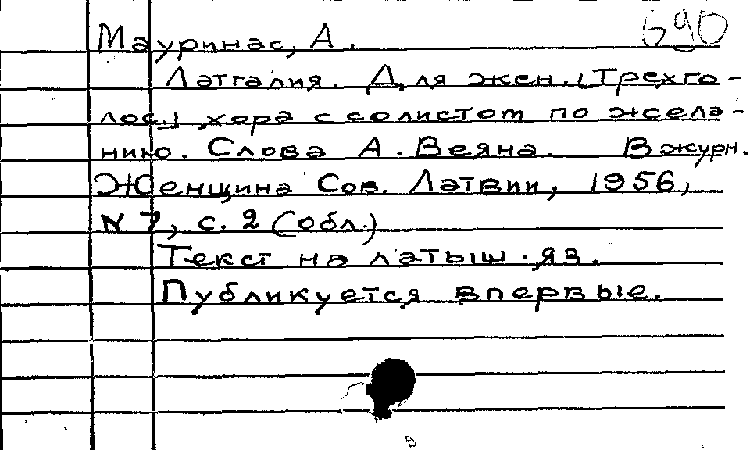 690
Мауринас, А.
Латгалия. Для жен. (Трехго-
лос.) хора с солистом по жела-
нию. Слова А. Веяна. В журн.
Женщина Сов. Латвии, 1956,
N 7, с. 2 (обл.)
Текст на латыш. яз.
Публикуется впервые.